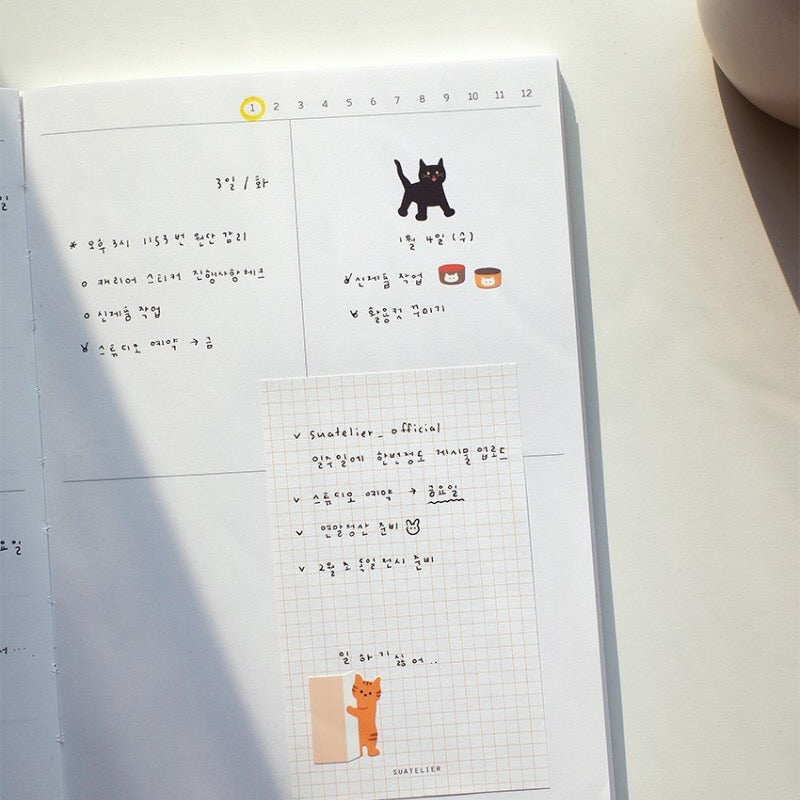 1 2 3 4 5 6 7 8 9 10 11 12
3일 / 화
* 오후 3시 1153번 원단 감리
o 캐리어 스티커 진행사항체크
o 신제품 작업
v 스튜디오 예약 → 금
1월 4일 (수)
v 신제품 작업
v 활용컷 꾸미기
v suatelier_official
일주일에 한번정도 게시물 업로드
v 스튜디오 예약 → 금요일
v 연말정산 준비
v 2월 초 독일 전시 준비
일 하기 싫어..
SUATELIER
요일